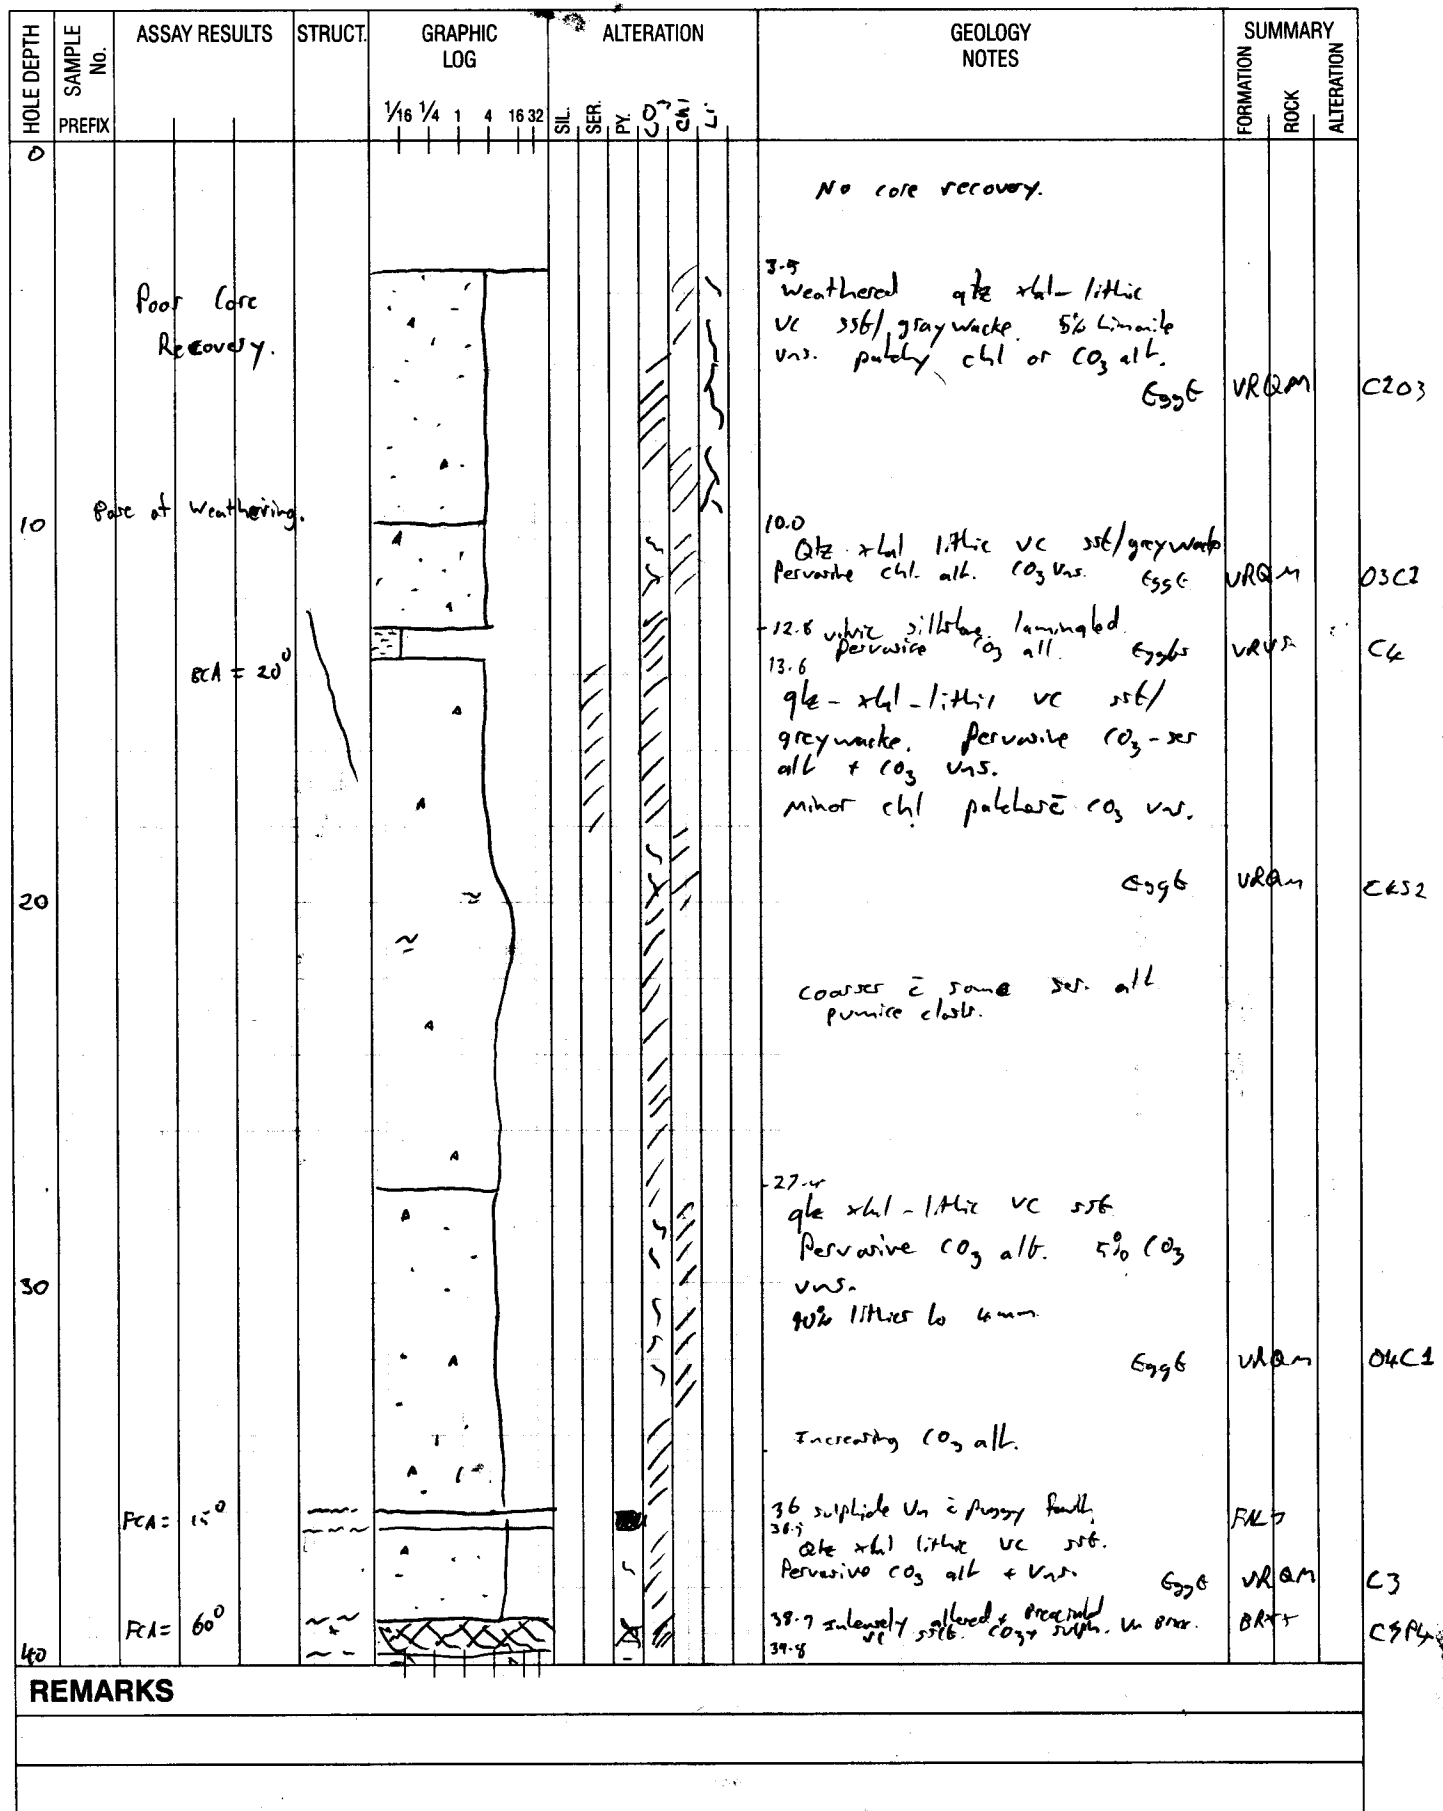 HOLE DEPTH
SAMPLE No.
PREFIX
ASSAY RESULTS
STRUCT.
GRAPHIC LOG
1/16 1/4 1 4 16 32
ALTERATION
SIL. SER. PY. CO3 Chl Li
GEOLOGY NOTES
SUMMARY
FORMATION ROCK ALTERATION
0
No core recovery.
3.5
Poor Core
Recovery.
weathered qtz xtal-lithic
vc sst/graywacke. 5% Limonite
vns. patchy chl or CO3 alt.
EggE VRQM C2O3
Base of Weathering.
10
10.0
Qtz xtal lithic vc sst/greywacke
Pervasive chl. alt. CO3 vns. EggE VRQM O3C2
12.8 vitric siltstone laminated.
Pervasive CO3 alt. C4
13.6
BCA = 20°
qtz-xtal-lithic vc sst/
greywacke. Pervasive CO3-ser
alt + CO3 vns.
Minor chl patches c̄ CO3 vns.
EggE VRQM C4S2
20
coarser c̄ some ser. alt
pumice clasts.
27.4
qtz xtal-lithic vc sst
Pervasive CO3 alt. 5% CO3
vns.
30
lithics to 4mm
EggE VRQM O4C1
Increasing CO3 alt.
FCA = 15°
36 sulphide vn c̄ puggy fault
Qtz xtal lithic vc sst.
Pervasive CO3 alt + vns.
EggE VRQM C3
FCA = 60°
38.7 Intensely altered + brecciated
vc sst. CO3 + sulph. vn brx.
39.8
40
REMARKS